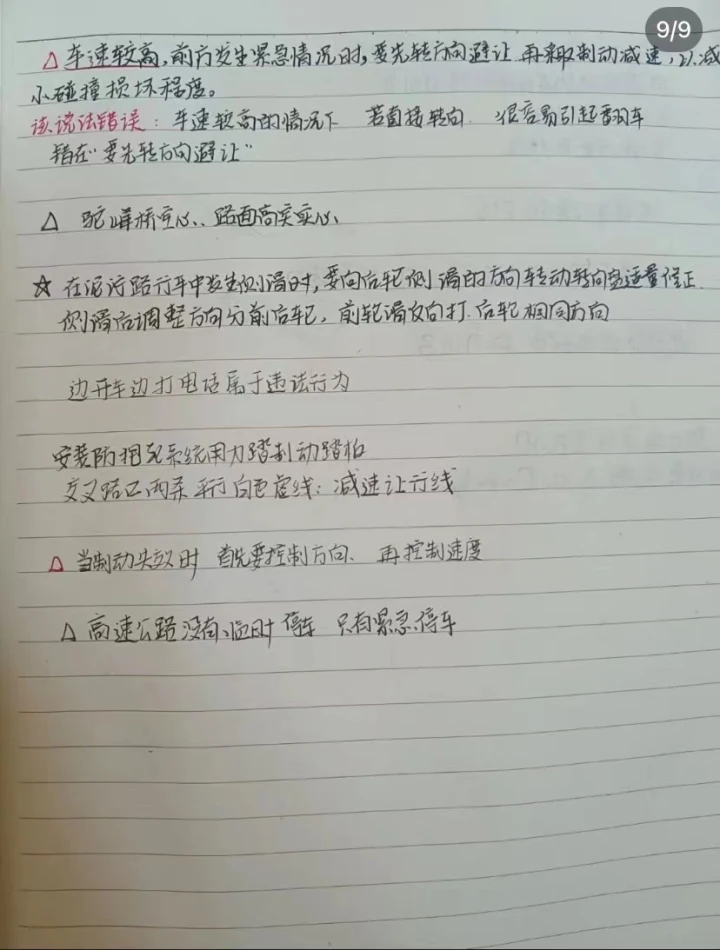 9/9
△ 车速较高,前方发生紧急情况时,要先转方向避让 再采取制动减速,以减
小碰撞损坏程度。
该说法错误:车速较高的情况下 若直接转向 很容易引起翻车
错在“要先转方向避让”
△ 驼峰桥空心、路面高突实心
☆ 在泥泞路行车中发生侧滑时,要向后轮侧滑的方向转动转向盘适量修正.
侧滑后调整方向分前后轮,前轮滑反向打.后轮相同方向
边开车边打电话属于违法行为
安装防抱死系统用力踏制动踏板
交叉路口两条平行白色虚线:减速让行线
△ 当制动失效时 首先要控制方向、再控制速度
△ 高速公路没有临时停车 只有紧急停车